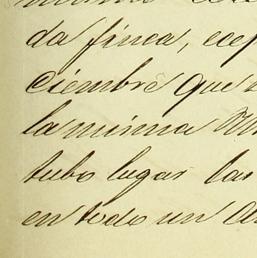 da finca, ecep
ciembre que
la misma
tubo lugar las
en todo un